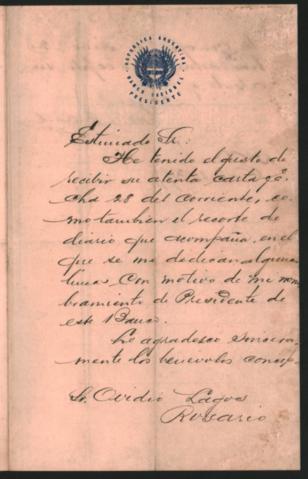 REPUBLICA ARGENTINA
BANCO NACIONAL
PRESIDENTE
Estimado Sr:
He tenido el gusto de
recibir su atenta carta fe
cha 28 del corriente, co-
mo tambien el recorte de
diario que acompaña, en el
que se me dedican algunas
lineas con motivo de mi nom
bramiento de Presidente de
este Banco.
Le agradezco sincera-
mente los benevolos concep-
Sr. Ovidio Lagos
Rosario